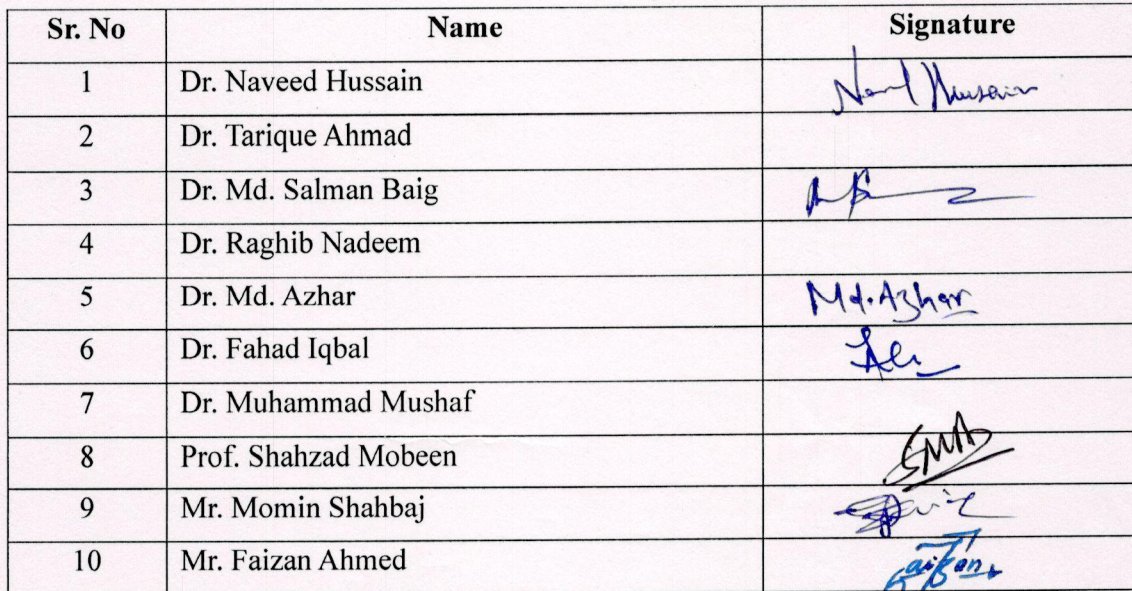 Sr. No Name Signature
1 Dr. Naveed Hussain Hussain
2 Dr. Tarique Ahmad
3 Dr. Md. Salman Baig
4 Dr. Raghib Nadeem
5 Dr. Md. Azhar Md. Azhar
6 Dr. Fahad Iqbal
7 Dr. Muhammad Mushaf
8 Prof. Shahzad Mobeen
9 Mr. Momin Shahbaj
10 Mr. Faizan Ahmed Faizan